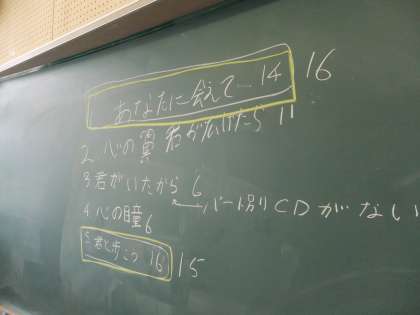 あなたに会えて… 14 16
2 心の翼 君が広げたら 11
3 君がいたから 6
4 心の瞳 6 ← パート別CDがない
5 君と歩こう 16 15